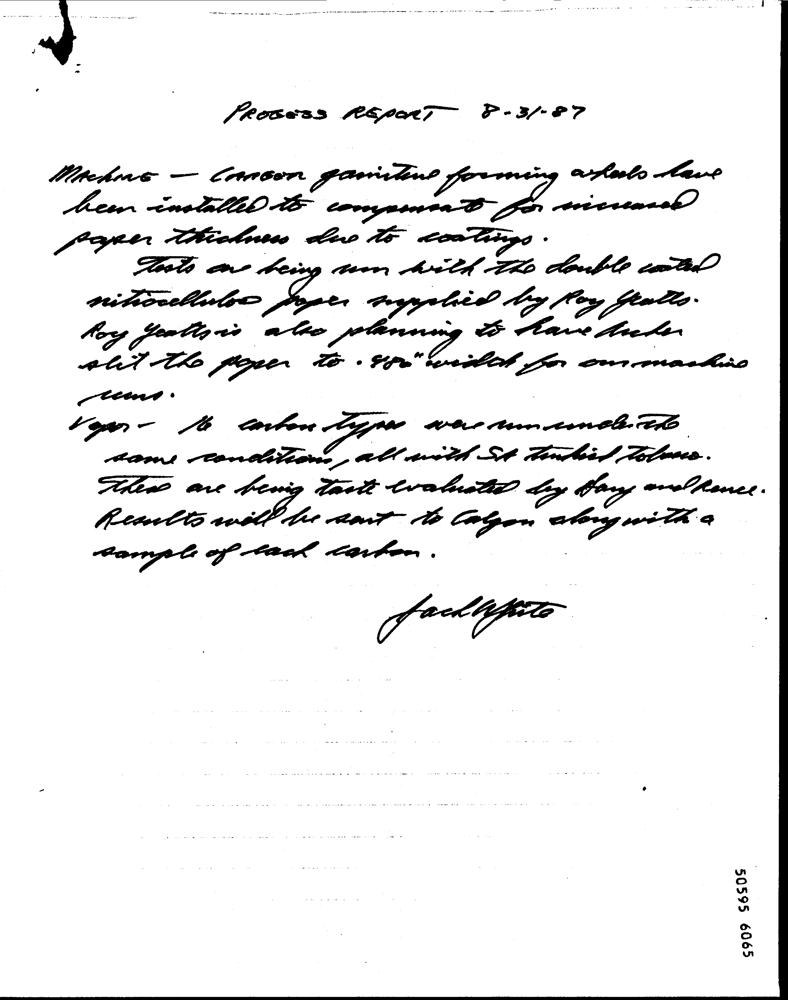 PROGESS REPORT 8-31-87
MACHINE - LARGER furniture forming wheels have
been installed to compensate for increased
paper thickness due to coatings.
Tests are being run with the double coated
nitrocellulose paper supplied by Roy Yeatts.
Roy Yeatts is also planning to have
slit the paper to .480" width for our machine
runs.
Vapor - 16 carbon types were run under the
same conditions, all with Turkish tobacco.
These are being taste evaluated by Gary and Renee.
Results will be sent to Calgon along with a
sample of each carbon.
Jack White
50595 6065